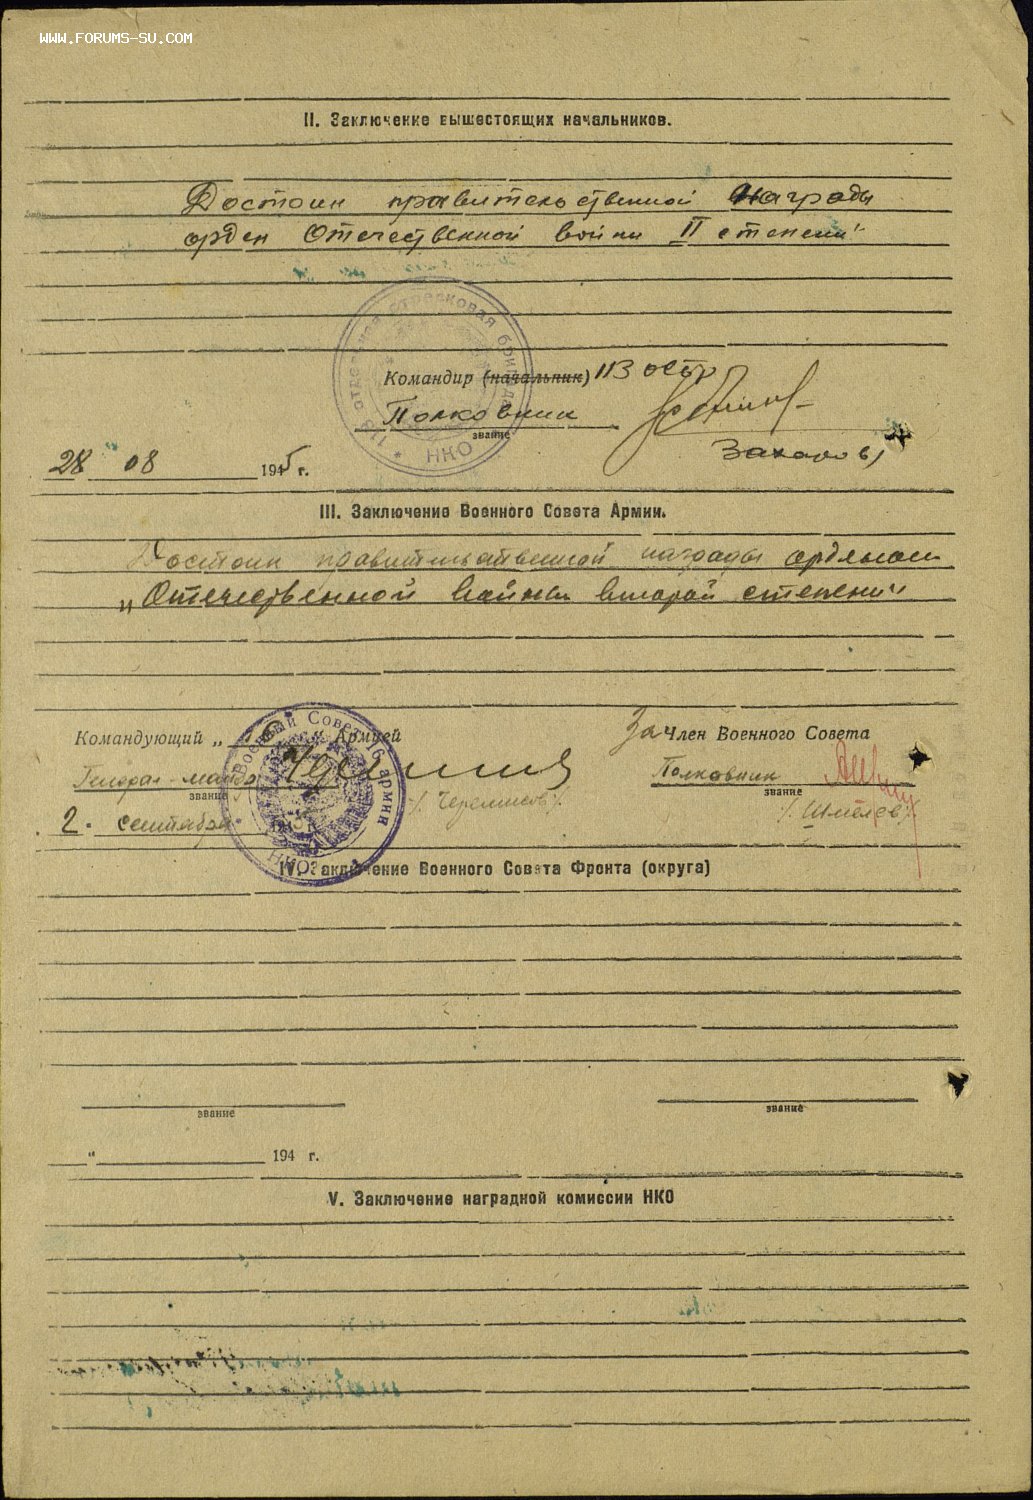 WWW.FORUMS-SU.COM
II. Заключение вышестоящих начальников.
Достоин правительственной награды
орден Отечественной войны II степени"
113 отдельная стрелковая бригада * НКО *
Командир (начальник) 113 осбр
Полковник
звание
Захаров/
28 08 1945 г.
III. Заключение Военного Совета Армии.
Достоин правительственной награды орденом
„Отечественной войны второй степени"
Командующий „16" Армией
За Член Военного Совета
Генерал-майор
Полковник
звание
звание
/Черемисов/
/Шмелев/
2. сентября
Военный Совет 16 армии
НКО
IV. Заключение Военного Совета Фронта (округа)
звание
звание
" 194 г.
V. Заключение наградной комиссии НКО